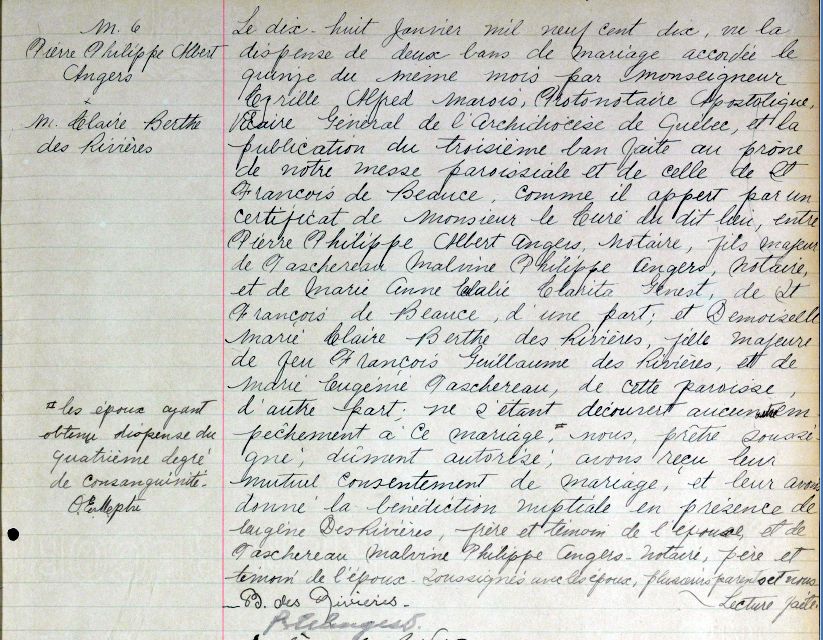 M. 6
Pierre Philippe Albert
Angers
&
M. Claire Berthe
des Rivières
Le dix-huit Janvier mil neuf cent dix, vu la
dispense de deux bans de mariage accordée le
quinze du même mois par Monseigneur
Cyrille Alfred Marois, Protonotaire Apostolique,
Vicaire Général de l'Archidiocèse de Québec, et la
publication du troisième ban faite au prône
de notre messe paroissiale et de celle de St
François de Beauce, comme il appert par un
certificat de Monsieur le Curé du dit lieu, entre
Pierre Philippe Albert Angers, Notaire, fils majeur
de Taschereau Malvine Philippe Angers, Notaire,
et de Marie Anne Elalie Clarita Genest, de St
François de Beauce, d'une part; et Demoiselle
Marie Claire Berthe des Rivières, fille majeure
de feu François Guillaume des Rivières, et de
Marie Eugénie Taschereau, de cette paroisse,
d'autre part; ne s'étant découvert aucun autre em-
pêchement à ce mariage,# nous, prêtre soussi-
gné, dûment autorisé, avons reçu leur
mutuel consentement de mariage, et leur avons
donné la bénédiction nuptiale en présence de
Eugène DesRivières, frère et témoin de l'épouse, et de
Taschereau Malvine Philippe Angers-Notaire, père et
témoin de l'époux-soussignés avec les époux, plusieurs parents et nous.
Lecture faite.
# les époux ayant
obtenu dispense du
quatrième degré
de consanguinité-
B. des Rivières-